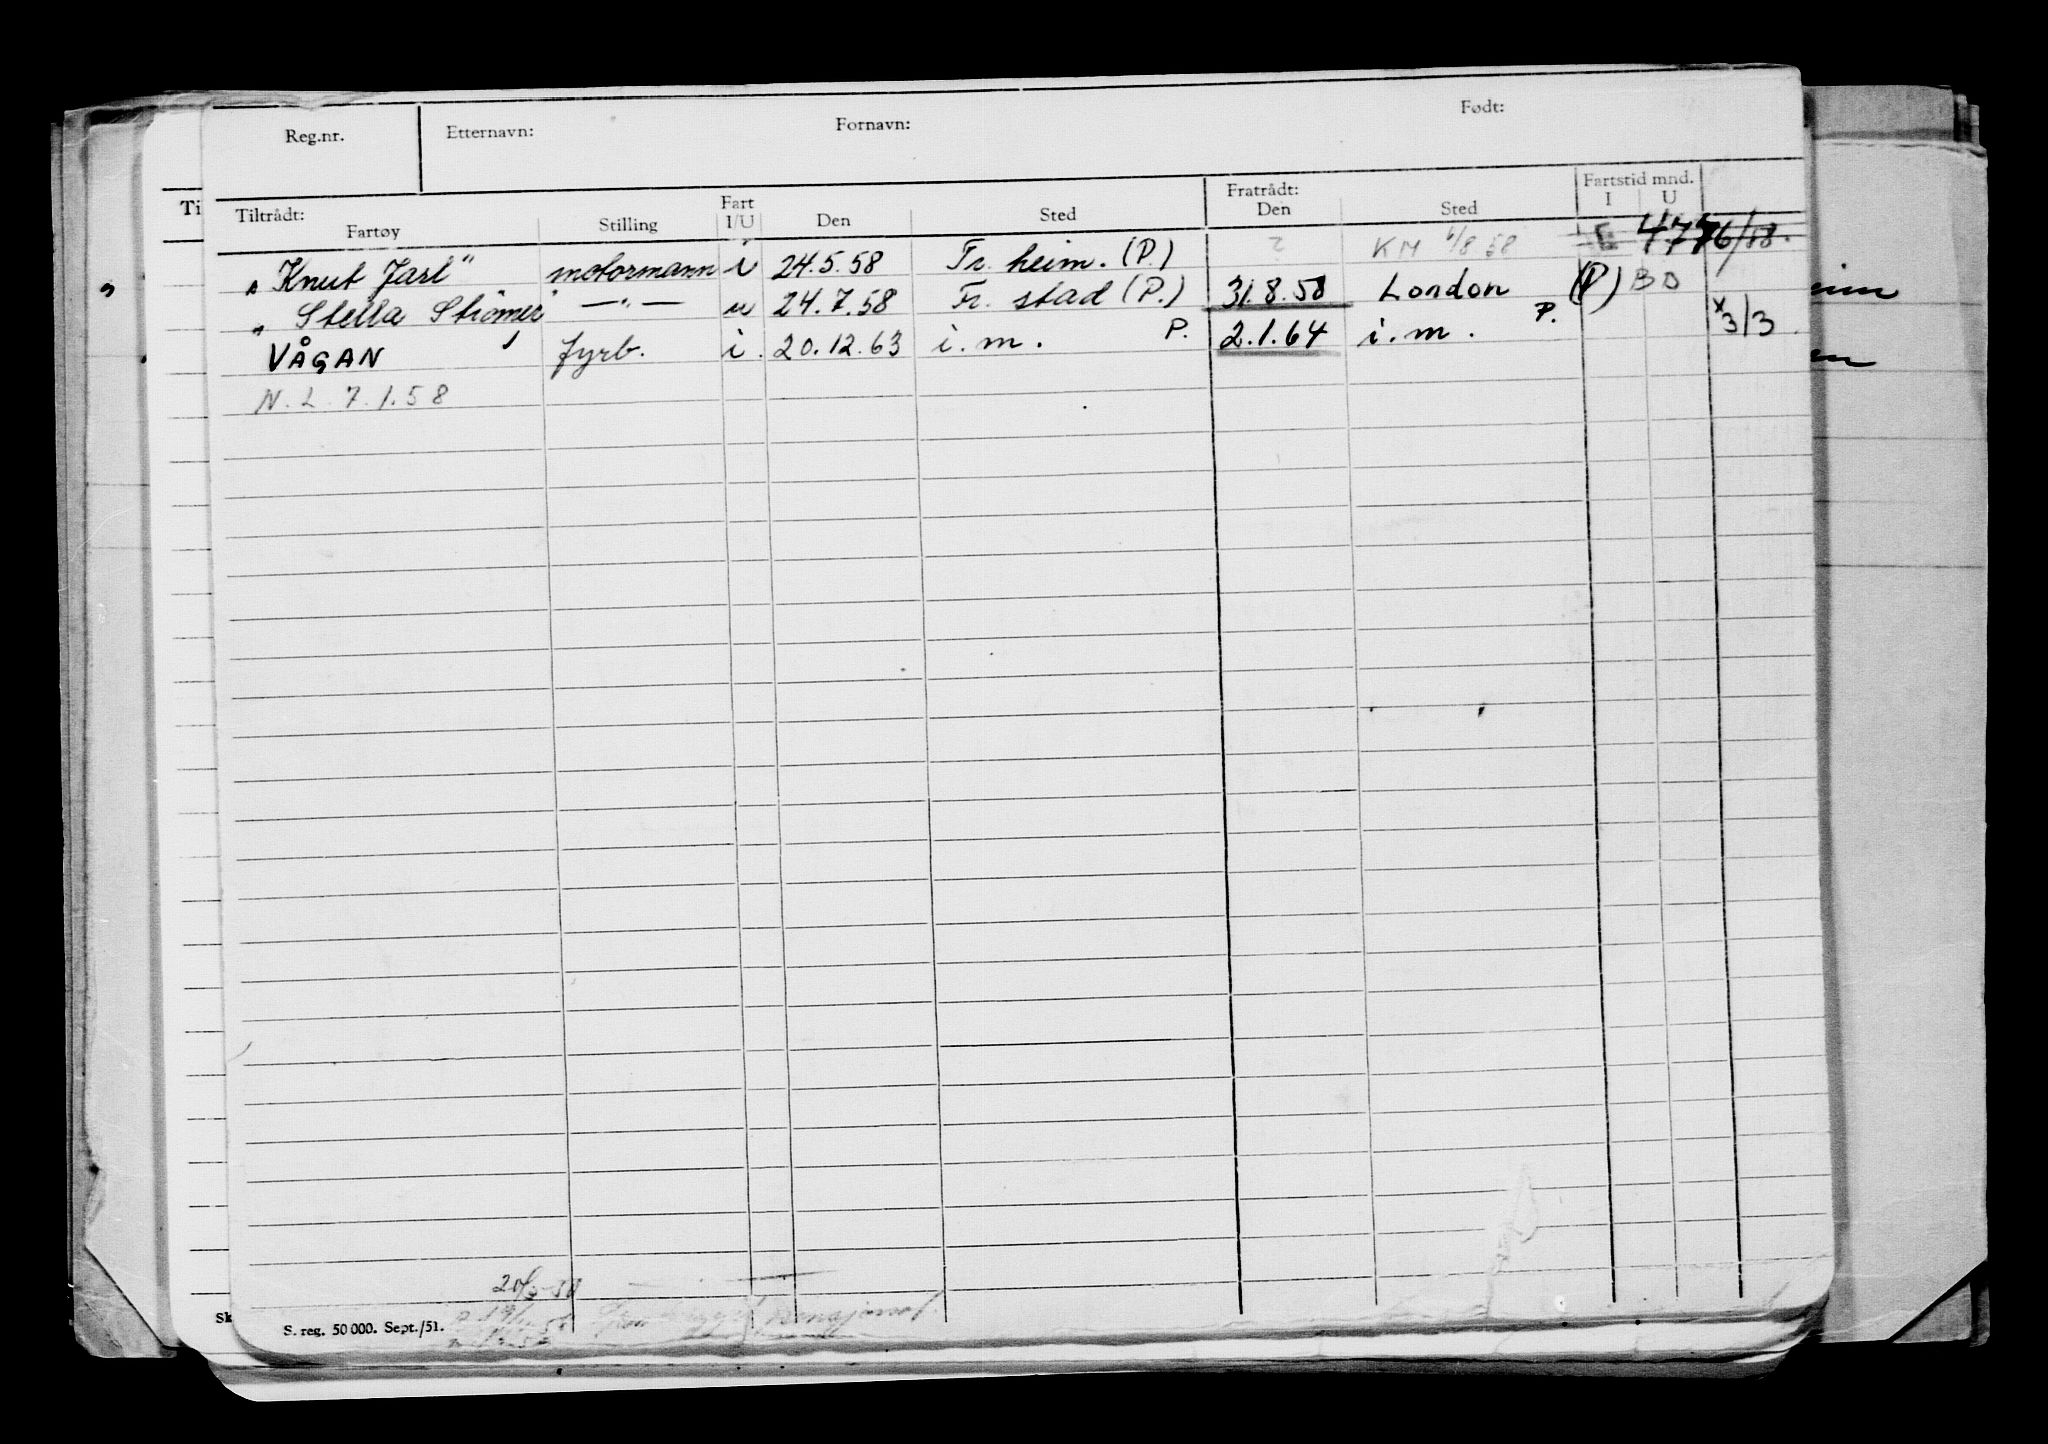 Reg.nr. Etternavn: Fornavn: Født:
Tiltrådt: Fart Fratrådt: Fartstid mnd.
Fartøy Stilling I/U Den Sted Den Sted I U
"Knut Jarl" motormann i 24.5.58 Tr. heim. (P.) ? KM 6/8 58
"Stella Strömer —"— u 24.7.58 Fr. stad (P.) 31.8.58 London (P) BD
VÅGAN fyrb. i. 20.12.63 i.m. P. 2.1.64 i.m. P. x3/3
N.L. 7.1.58
S. reg. 50 000. Sept./51.